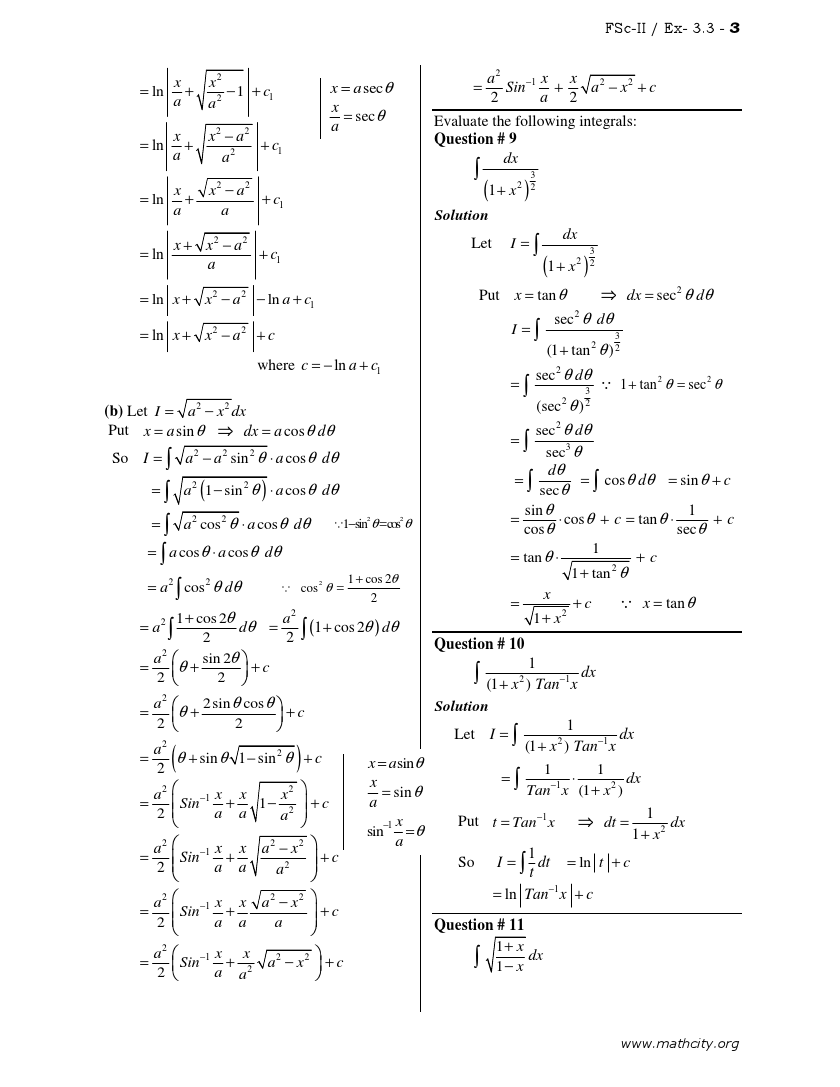 FSc-II / Ex- 3.3 - 3
= ln | x/a + √(x²/a² − 1) | + c₁
x = a sec θ
x/a = sec θ
= ln | x/a + √((x² − a²)/a²) | + c₁
= ln | x/a + √(x² − a²)/a | + c₁
= ln | (x + √(x² − a²))/a | + c₁
= ln | x + √(x² − a²) | − ln a + c₁
= ln | x + √(x² − a²) | + c
where c = − ln a + c₁
(b) Let I = √(a² − x²) dx
Put x = a sin θ ⇒ dx = a cos θ dθ
So I = ∫ √(a² − a² sin² θ) · a cos θ dθ
= ∫ √(a² (1 − sin² θ)) · a cos θ dθ
= ∫ √(a² cos² θ) · a cos θ dθ ∵ 1 − sin² θ = cos² θ
= ∫ a cos θ · a cos θ dθ
= a² ∫ cos² θ dθ ∵ cos² θ = (1 + cos 2θ)/2
= a² ∫ (1 + cos 2θ)/2 dθ = a²/2 ∫ (1 + cos 2θ) dθ
= a²/2 (θ + sin 2θ/2) + c
= a²/2 (θ + 2 sin θ cos θ/2) + c
= a²/2 (θ + sin θ √(1 − sin² θ)) + c
x = a sin θ
x/a = sin θ
sin⁻¹ x/a = θ
= a²/2 (Sin⁻¹ x/a + x/a √(1 − x²/a²)) + c
= a²/2 (Sin⁻¹ x/a + x/a √((a² − x²)/a²)) + c
= a²/2 (Sin⁻¹ x/a + x/a √(a² − x²)/a) + c
= a²/2 (Sin⁻¹ x/a + x/a² √(a² − x²)) + c
= a²/2 Sin⁻¹ x/a + x/2 √(a² − x²) + c
Evaluate the following integrals:
Question # 9
∫ dx/(1 + x²)^(3/2)
Solution
Let I = ∫ dx/(1 + x²)^(3/2)
Put x = tan θ ⇒ dx = sec² θ dθ
I = ∫ sec² θ dθ/(1 + tan² θ)^(3/2)
= ∫ sec² θ dθ/(sec² θ)^(3/2) ∵ 1 + tan² θ = sec² θ
= ∫ sec² θ dθ/sec³ θ
= ∫ dθ/sec θ = ∫ cos θ dθ = sin θ + c
= sin θ/cos θ · cos θ + c = tan θ · 1/sec θ + c
= tan θ · 1/√(1 + tan² θ) + c
= x/√(1 + x²) + c ∵ x = tan θ
Question # 10
∫ 1/((1 + x²) Tan⁻¹x) dx
Solution
Let I = ∫ 1/((1 + x²) Tan⁻¹x) dx
= ∫ 1/Tan⁻¹x · 1/(1 + x²) dx
Put t = Tan⁻¹x ⇒ dt = 1/(1 + x²) dx
So I = ∫ 1/t dt = ln | t | + c
= ln | Tan⁻¹x | + c
Question # 11
∫ √((1 + x)/(1 − x)) dx
www.mathcity.org